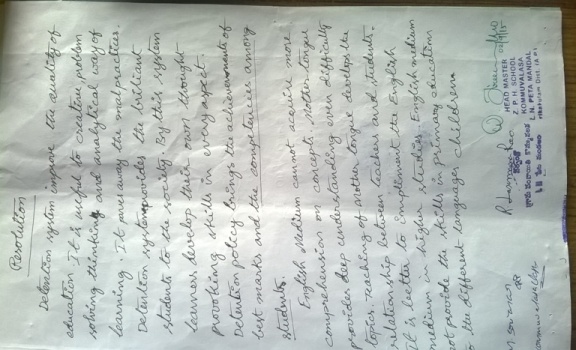 Resolution
Detention system improve the quality of
education It is useful to creative problem
solving thinking and analytical way of
learning. It moves away the malpractice.
Detention system provides the brilliant
students to the society. By this system
learners develop their own thought
provoking skills in every aspect.
Detention policy brings the achievements of
best marks and the competencies among
students.
English Medium cannot acquire more
comprehension on concepts. Mother tongue
provides deep understanding even difficulty
topics. Teaching of mother tongue develops the
relationship between teachers and students.
It is better to implement the English
medium in higher studies. English medium
not provide the skills in primary education
to the different languages children
HEAD MASTER
Z.P.H. SCHOOL
KOMMUVALASA
L.N. PETA MANDAL